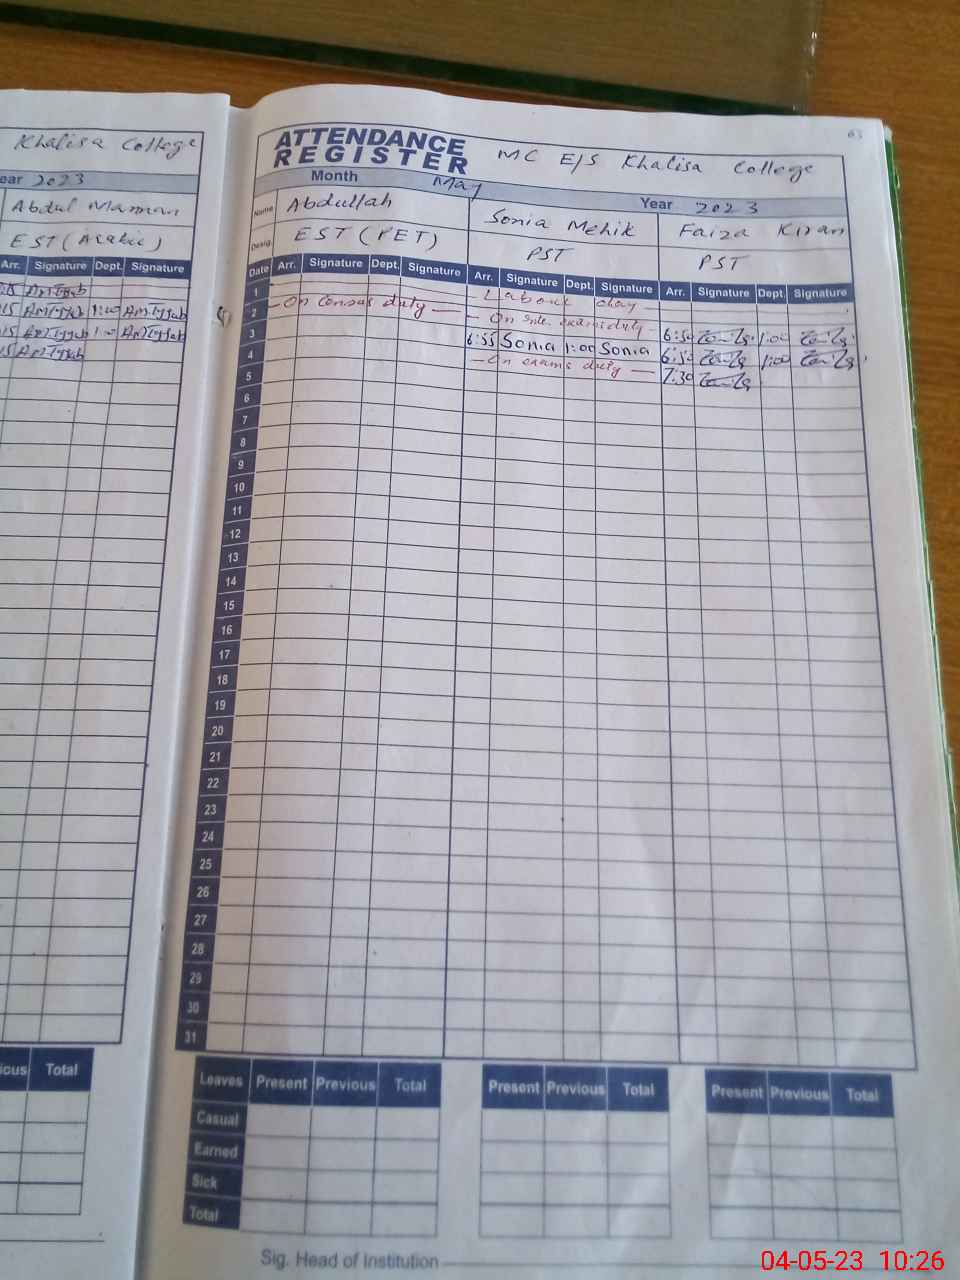 Khalisa College
ear 2023
Abdul Mannan
EST (Arabic)
Arr. Signature Dept. Signature
1:00
ious Total
63
ATTENDANCE
REGISTER
MC E/S Khalisa College
Month May Year 2023
Name Abdullah Sonia Mehik Faiza Kiran
Desig. EST (PET) PST PST
Date Arr. Signature Dept. Signature Arr. Signature Dept. Signature Arr. Signature Dept. Signature
1 Labour day
2 On Census duty On exam duty 6:50 1:00
3 6:55 Sonia 1:00 Sonia 6:50 1:00
4 On exams duty 7:30
5
6
7
8
9
10
11
12
13
14
15
16
17
18
19
20
21
22
23
24
25
26
27
28
29
30
31
Leaves Present Previous Total Present Previous Total Present Previous Total
Casual
Earned
Sick
Total
Sig. Head of Institution
04-05-23 10:26